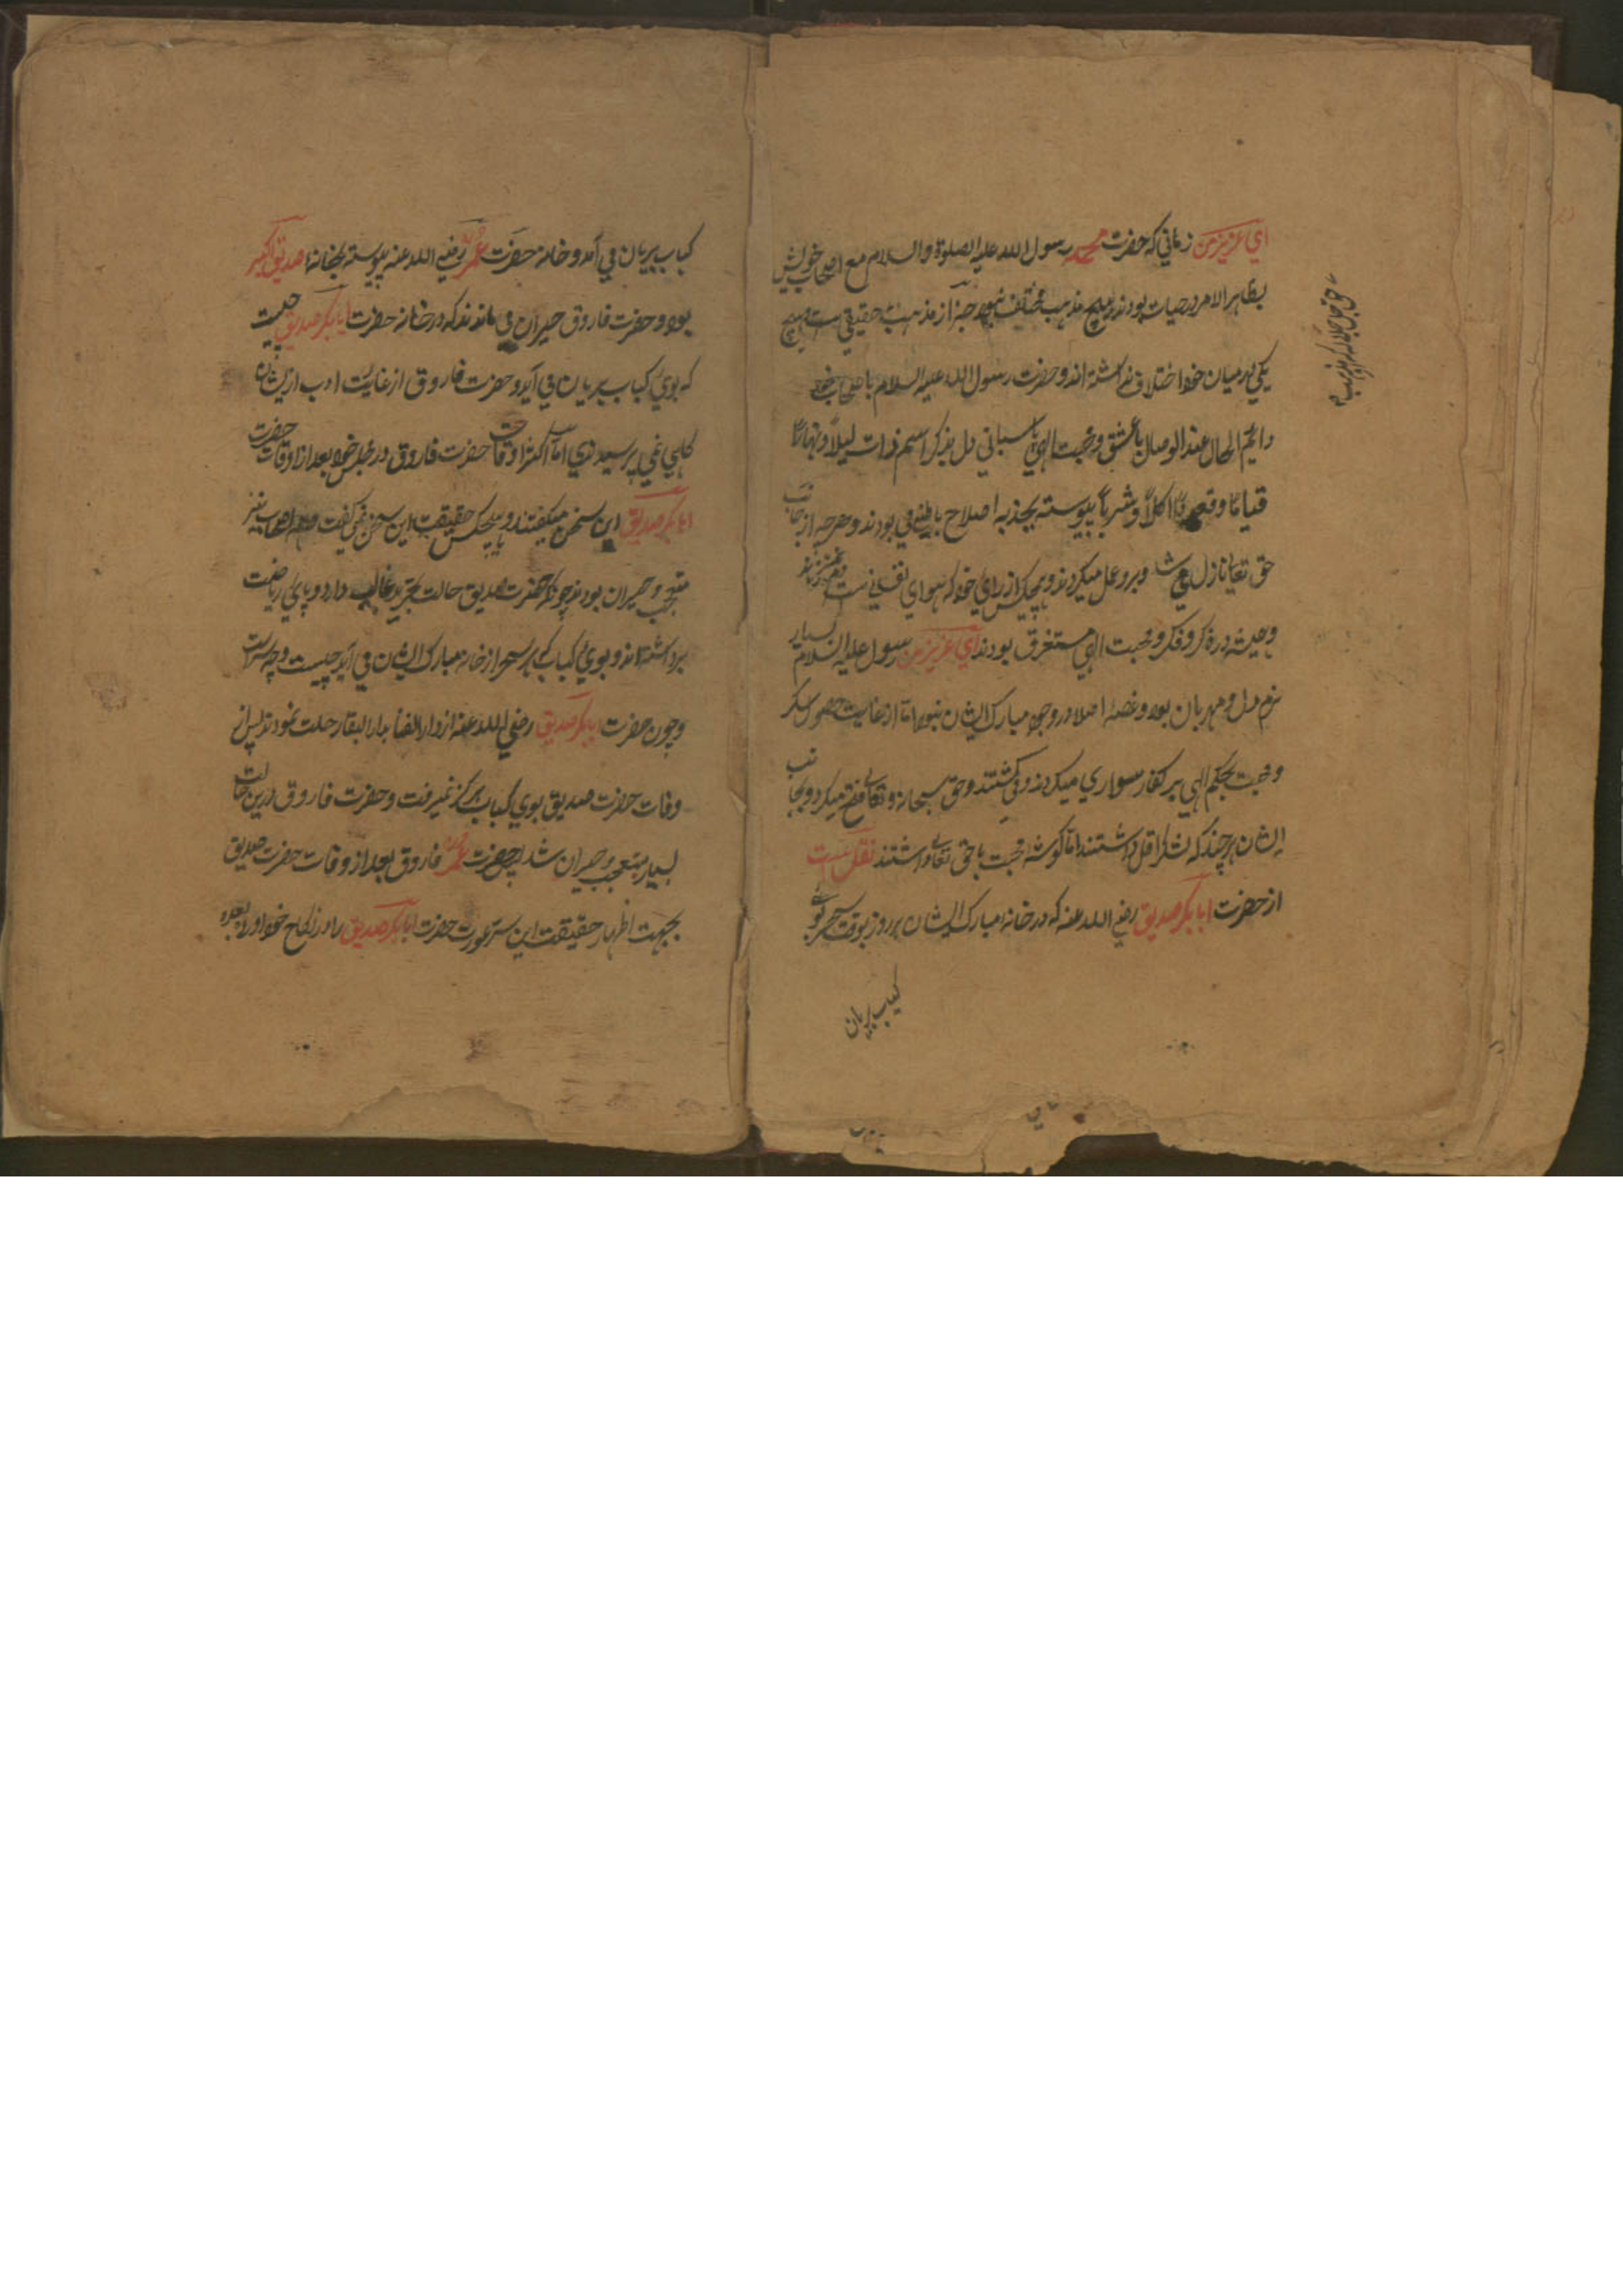 ای عزیز من زمانی که حضرت محمد رسول الله علیه الصلوة والسلام مع اصحاب خویش
بظاهر الامر در حیات بودند هیچ مذهب مختلف نبود جز از مذهب حقیقی
یکی در میان خود اختلاف نداشته اند و حضرت رسول الله علیه السلام با اصحاب خود
دایم الحال عند الوصال با عشق و محبت الهی پاسبانی دل بذکر اسم ذات لیلاً و نهاراً
قیاماً و قعوداً اکلاً و شرباً پیوسته بجذبه اصلاح باطنی بودند و هرچه از جانب
حق تعا نازل میشد و برو عمل میکردند و هیچکس از رای خود که هوای نفسانی است
و همیشه در ذکر و فکر و محبت الهی مستغرق بودند ای عزیز من رسول علیه السلام بسیار
نرم دل و مهربان بود و غصه اصلا در وجود مبارک ایشان نبود اما از غایت حضور سکر
و محبت بحکم الهی بر کفار سواری میکردند و می کشتند و حق سبحانه و تعالی فتح میکرد و بجانب
ایشان هرچند که لشکر اقل داشتند اما گوشه محبت با حق تعالی داشتند نقل است
از حضرت ابابکر صدیق رضی الله عنه که در خانه مبارک ایشان هر روز بوقت سحر بوی
کباب بریان
کباب بریان می آمد و خانه حضرت عمر رضی الله عنه پیوسته بخانه صدیق اکبر
بود و حضرت فاروق حیران می ماندند که در خانه حضرت ابابکر صدیق چیست
که بوی کباب بریان می آید و حضرت فاروق از غایت ادب از ایشان
گاهی نمی پرسیدندی اما اکثر اوقات حضرت فاروق در مجلس خود بعد از وفات حضرت
ابابکر صدیق این سخن میگفتند و هیچکس حقیقت این سخن نمی گفت و همه اصحاب نیز
متعجب و حیران بودند چونکه حضرت صدیق حالت تجرید غالب دارد و پای ریاضت
برداشته اند و بوی کباب که هر سحر از خانه مبارک ایشان می آید چیست و چه سر است
و چون حضرت ابابکر صدیق رضی الله عنه از دار الفنا بدار البقا رحلت نمودند پس از
وفات حضرت صدیق بوی کباب هرگز نمیرفت و حضرت فاروق درین حالت
بسیار متعجب و حیران شد حضرت عمر فاروق بعد از وفات حضرت صدیق
بجهت اظهار حقیقت این سر عورت حضرت ابابکر صدیق را در نکاح خود آورد